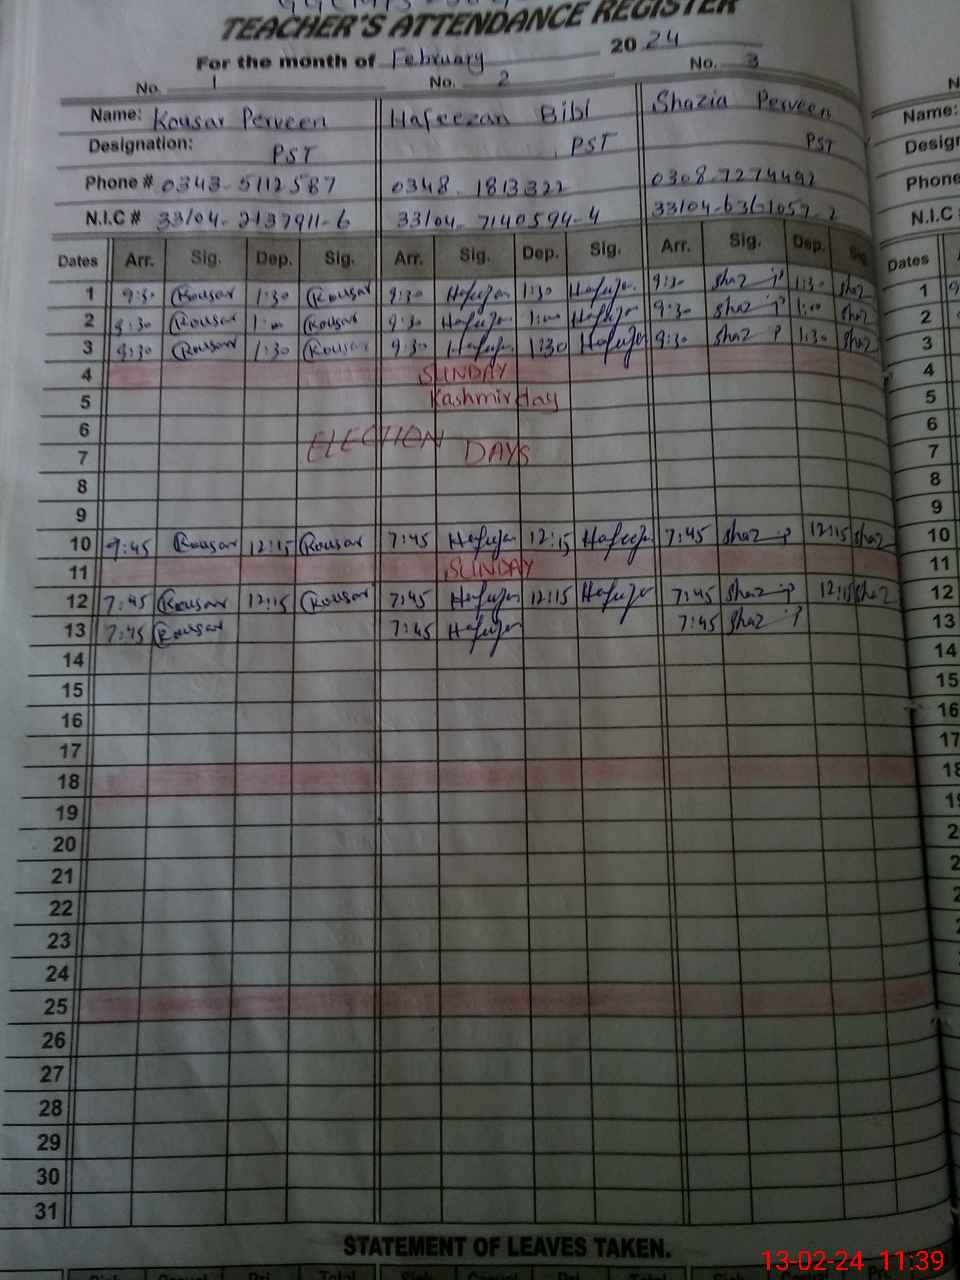 TEACHER'S ATTENDANCE REGISTER
For the month of February 2024
No. 1 No. 2 No. 3
Name: Kousar Perveen Hafeezan Bibi Shazia Perveen Name:
Designation: PST PST PST
Phone # 0343-5112587 0348-1813322 0308-7274492 Phone
N.I.C # 33104-2137911-6 33104-7140594-4 N.I.C
Dates Arr. Sig. Dep. Sig. Arr. Sig. Dep. Sig. Arr. Sig. Dep. Dates
1 9:30 Kousar 1:30 Kousar 9:30 1:30 9:30 Shaz 1:30 Shaz 1
2 9:30 Kousar 1:00 Kousar 9:30 1:00 9:30 Shaz 1:00 Shaz 2
3 9:30 Kousar 1:30 Kousar 9:30 1:30 9:30 Shaz 1:30 Shaz 3
4 SUNDAY 4
5 Kashmir day 5
6 ELECTION 6
7 DAYS 7
8 8
9 9
10 9:45 Kousar 12:15 Kousar 7:45 12:15 7:45 Shaz 12:15 Shaz 10
11 SUNDAY 11
12 7:45 Kousar 12:15 Kousar 7:45 12:15 7:45 Shaz 12:15 Shaz 12
13 7:45 Kousar 7:45 7:45 Shaz 13
14 14
15 15
16 16
17 17
18 18
19
20
21
22
23
24
25
26
27
28
29
30
31
STATEMENT OF LEAVES TAKEN.
13-02-24 11:39